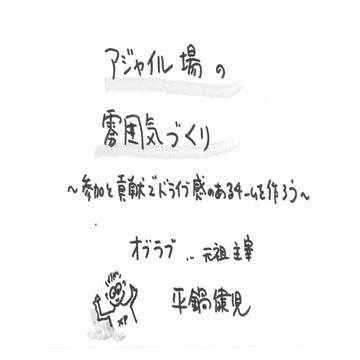 アジャイル場の
雰囲気づくり
～参加と貢献でドライブ感のあるチームを作ろう～
オブラブ .. 元祖主宰
平鍋健児
XP